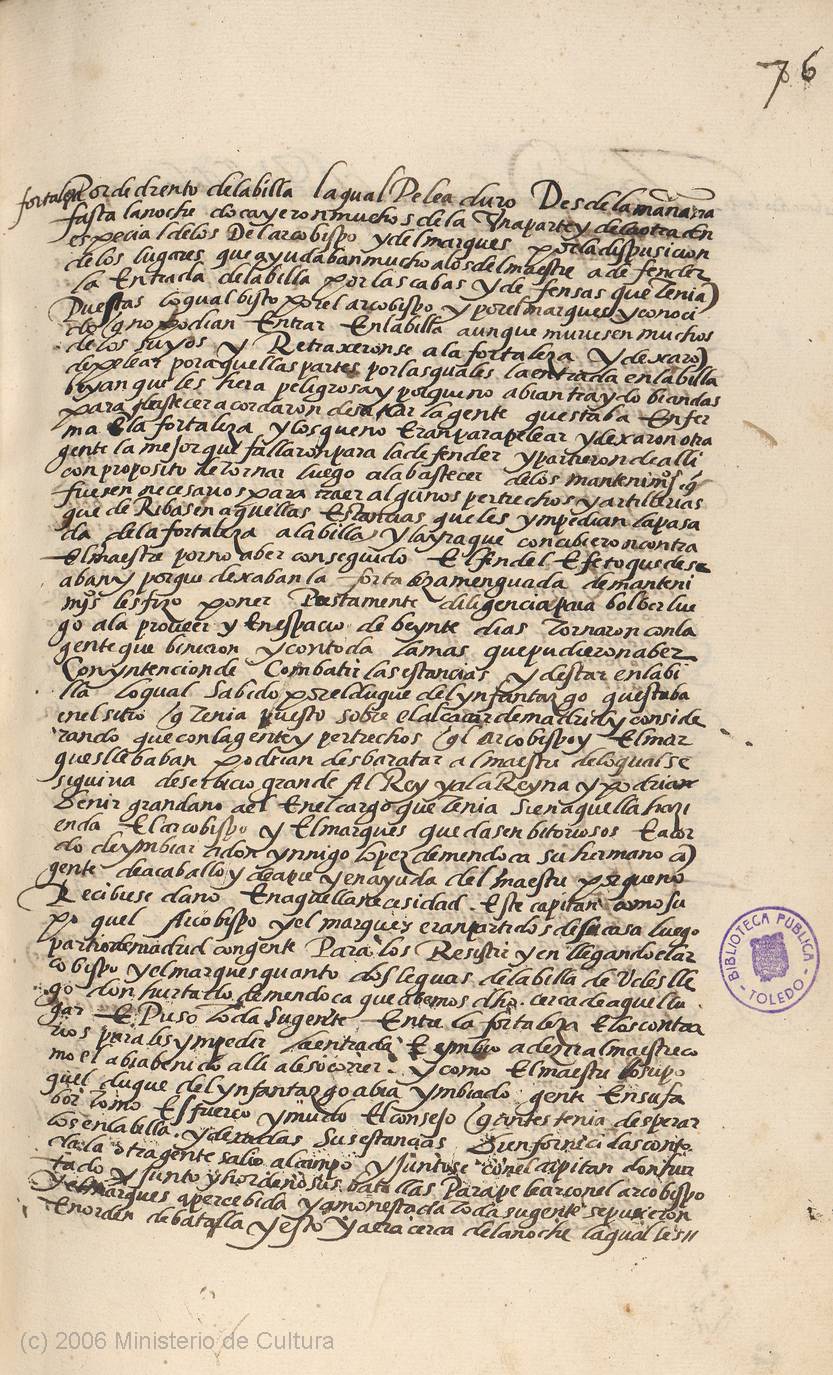 76
fortaleza por de drento de la billa la qual Pelea duro Desde la mañana
fasta la noche do cayeron muchos de la Vna parte y de la otra En
especial de los Del arcobispo y del marques por la dispusicion
de los lugares que ayudaban mucho a los del maestre a defender
la Entrada de la billa por las cabas y defensas que tenia
Puestas lo qual bisto por el arcobispo y por el marques y conoci
do q no podian Entrar En la billa aunque muriesen muchos
de los suyos y Retraxeronse a la fortaleza y dexaro
de pelear por aquellas partes por las quales la entrada en la billa
beyan que les hera peligrosa y porque no abian traydo biandas
para bastecer acordaron de sacar la gente questaba Enfer
ma En la fortaleza y los que no eran para pelear y dexaron otra
gente la mejor que fallaron para la defender y partieron de alli
con proposito de tornar luego a la bastecer de los mantenimos q
fuesen necesarios y para traer algunos pertrechos y artillerias
que deRibasen aquellas Estancias que les ympedian la pasa
da de la fortaleza a la billa y la yra que concibieron contra
El maestre por no aber conseguido El fin del Efeto que dese
aban y porque dexaban la fortaleza menguada de manteni
mjos les fizo poner Prestamente diligencia para bolber lue
go a la proueer y En espacio de beynte dias tornaron con la
gente que binieron y con toda la mas que pudieron aber
Con yntencion de Combatir las estancias y destar en la bi
lla lo qual Sabido por el duque del ynfantazgo questaba
en el sitio q tenia puesto sobre el alcaçar de madrid y conside
rando que con la gente y pertrechos q el arcobispo y El mar
ques llebaban podrian desbaratar al maestre de lo qual se
siguiria deserbicio grande Al Rey y a la Reyna y podrian
Venir gran daño a el En el cargo que tenia Si en aquella hazi
enda El arcobispo y El marques quedasen bitoriosos Eacor
do de ymbiar a don ynnigo lopez de mendoca su hermano co
gente de a caballo y de a pie y en ayuda del maestre porque no
Recibiese daño En aquella necesidad. Este capitan como su
po quel Arcobispo y el marques eran partidos de su casa luego
partio de madrid con gente Para los Resistir y en llegando el ar
cobispo y el marques quanto dos leguas de la billa de Vcles lle
go don hurtado de mendoca que abemos dho. cerca de aquel lu
gar E Puso toda Su gente Entre la fortaleza E los contra
rios para les ympedir la entrada E embio a dezir al maestre co
mo el abia benido alli a le socorrer. y como El maestre lo supo
quel duque del ynfantazgo abia ymbiado gente En su fa
bor tomo Esfuerco y mudo El consejo q antes tenia de esperar
los en la billa. y dexadas Sus estancias bien fornicidas con to
da la otra gente salio al campo y Juntose con el capitan don hur
tado y Junto y hordeno sus batallas Para pelear con el arcobispo
y el marques apercebida y amonestada toda su gente se pusieron
En orden de batalla y esto ya era cerca de la noche la qual les
BIBLIOTECA PUBLICA - TOLEDO -
(c) 2006 Ministerio de Cultura